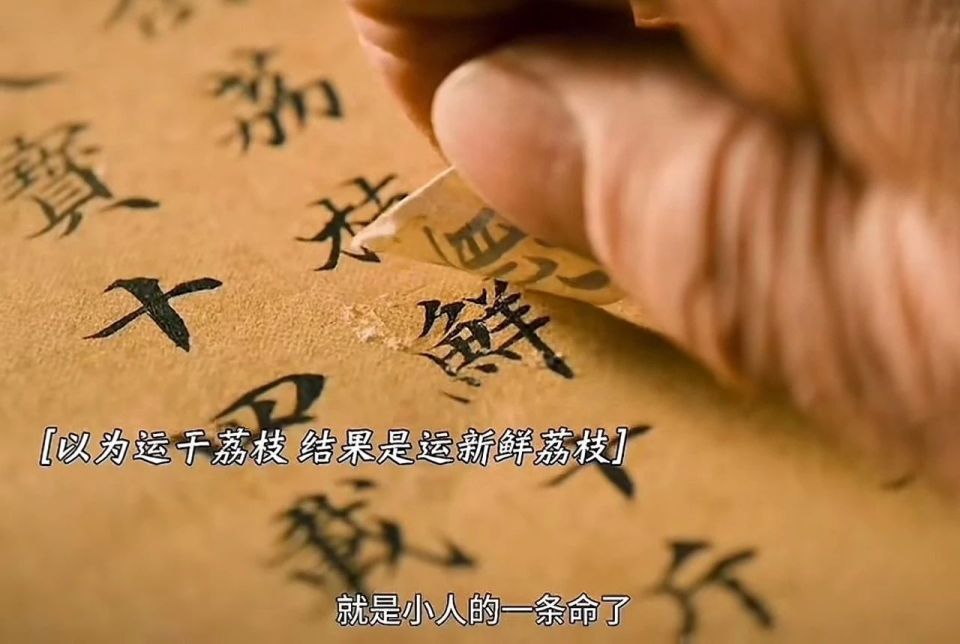 荔枝鮮十斤
寶十四載
[以为运干荔枝 结果是运新鲜荔枝]
就是小人的一条命了